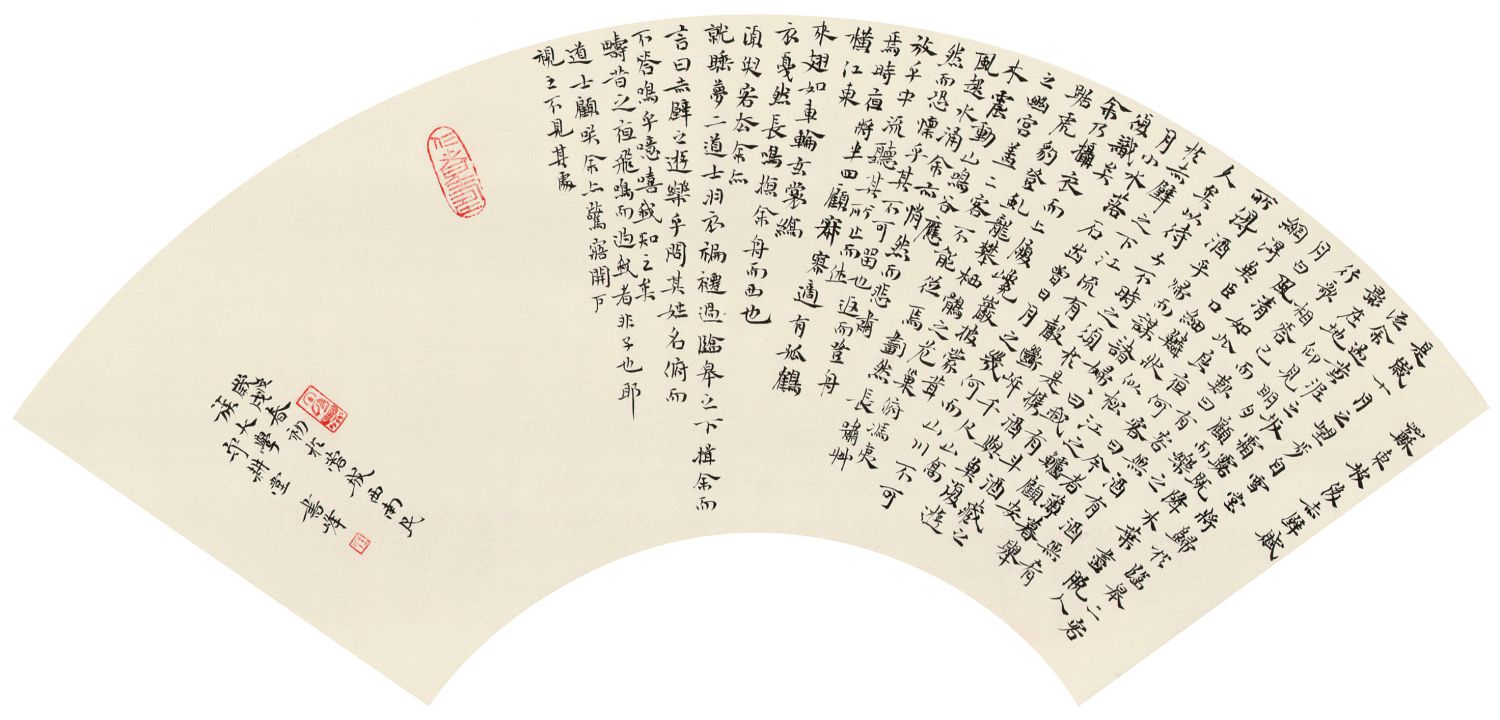 蘇東坡後赤壁賦
是歲十月之望步自雪堂將歸於臨皋二客
從余過黃泥之坂霜露既降木葉盡脫人
影在地仰見明月顧而樂之
行歌相答已而歎曰有客無酒有
酒無肴月白風清如此良夜何客曰今者薄暮舉
網得魚巨口細鱗狀似松江之鱸顧安
所得酒乎歸而謀諸婦婦曰我有斗酒藏之
久矣以待子不時之須於是攜酒與魚復遊
於赤壁之下江流有聲斷岸千尺山高
月小水落石出曾日月之幾何而江山不可
復識矣
余乃攝衣而上履巉巖披蒙茸
踞虎豹登虬龍攀栖鶻之危巢俯馮夷
之幽宮蓋二客不能從焉劃然長嘯艸
木震動山鳴谷應
風起水涌余亦悄然而悲肅
然而恐懍乎其不可留也返而登舟
放乎中流聽其所止而休
焉時夜將半四顧寂寥適有孤鶴
橫江東
來翅如車輪玄裳縞
衣戛然長鳴掠余舟而西也
須臾客去余亦
就睡夢二道士羽衣褊襳過臨皋之下揖余而
言曰赤壁之遊樂乎問其姓名俯而
不答嗚乎噫嘻我知之矣
疇昔之夜飛鳴而過我者非子也耶
道士顧笑余亦驚寤開戶
視之不見其處
歲在戊戌春初於蓉城西南民
族大學印耕堂書峰